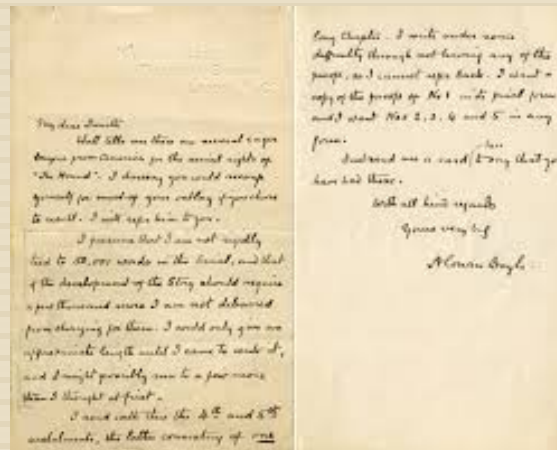 My dear Smith
Watt tells me there are several eager
buyers from America for the serial rights of
"The Hound". I daresay you could recoup
yourself for most of your outlay if you chose
to resell. I will refer him to you.
I presume that I am not rigidly
tied to 50,000 words in the Serial, and that
if the development of the Story should require
a few thousand more I am not debarred
from charging for them. I could only give an
approximate length until I came to write it,
and I might possibly run to a few more
than I thought at first.
I send with this the 4th and 5th
instalments, the latter consisting of one
long Chapter. I write under some
difficulty through not having any of the
proofs, so I cannot refer back. I want a
copy of the proofs of No 1 in its final form
and I want Nos 2, 3, 4 and 5 in any
form.
Just send me a card to say that you
have had these.
With all kind regards
Yours very truly
A Conan Doyle